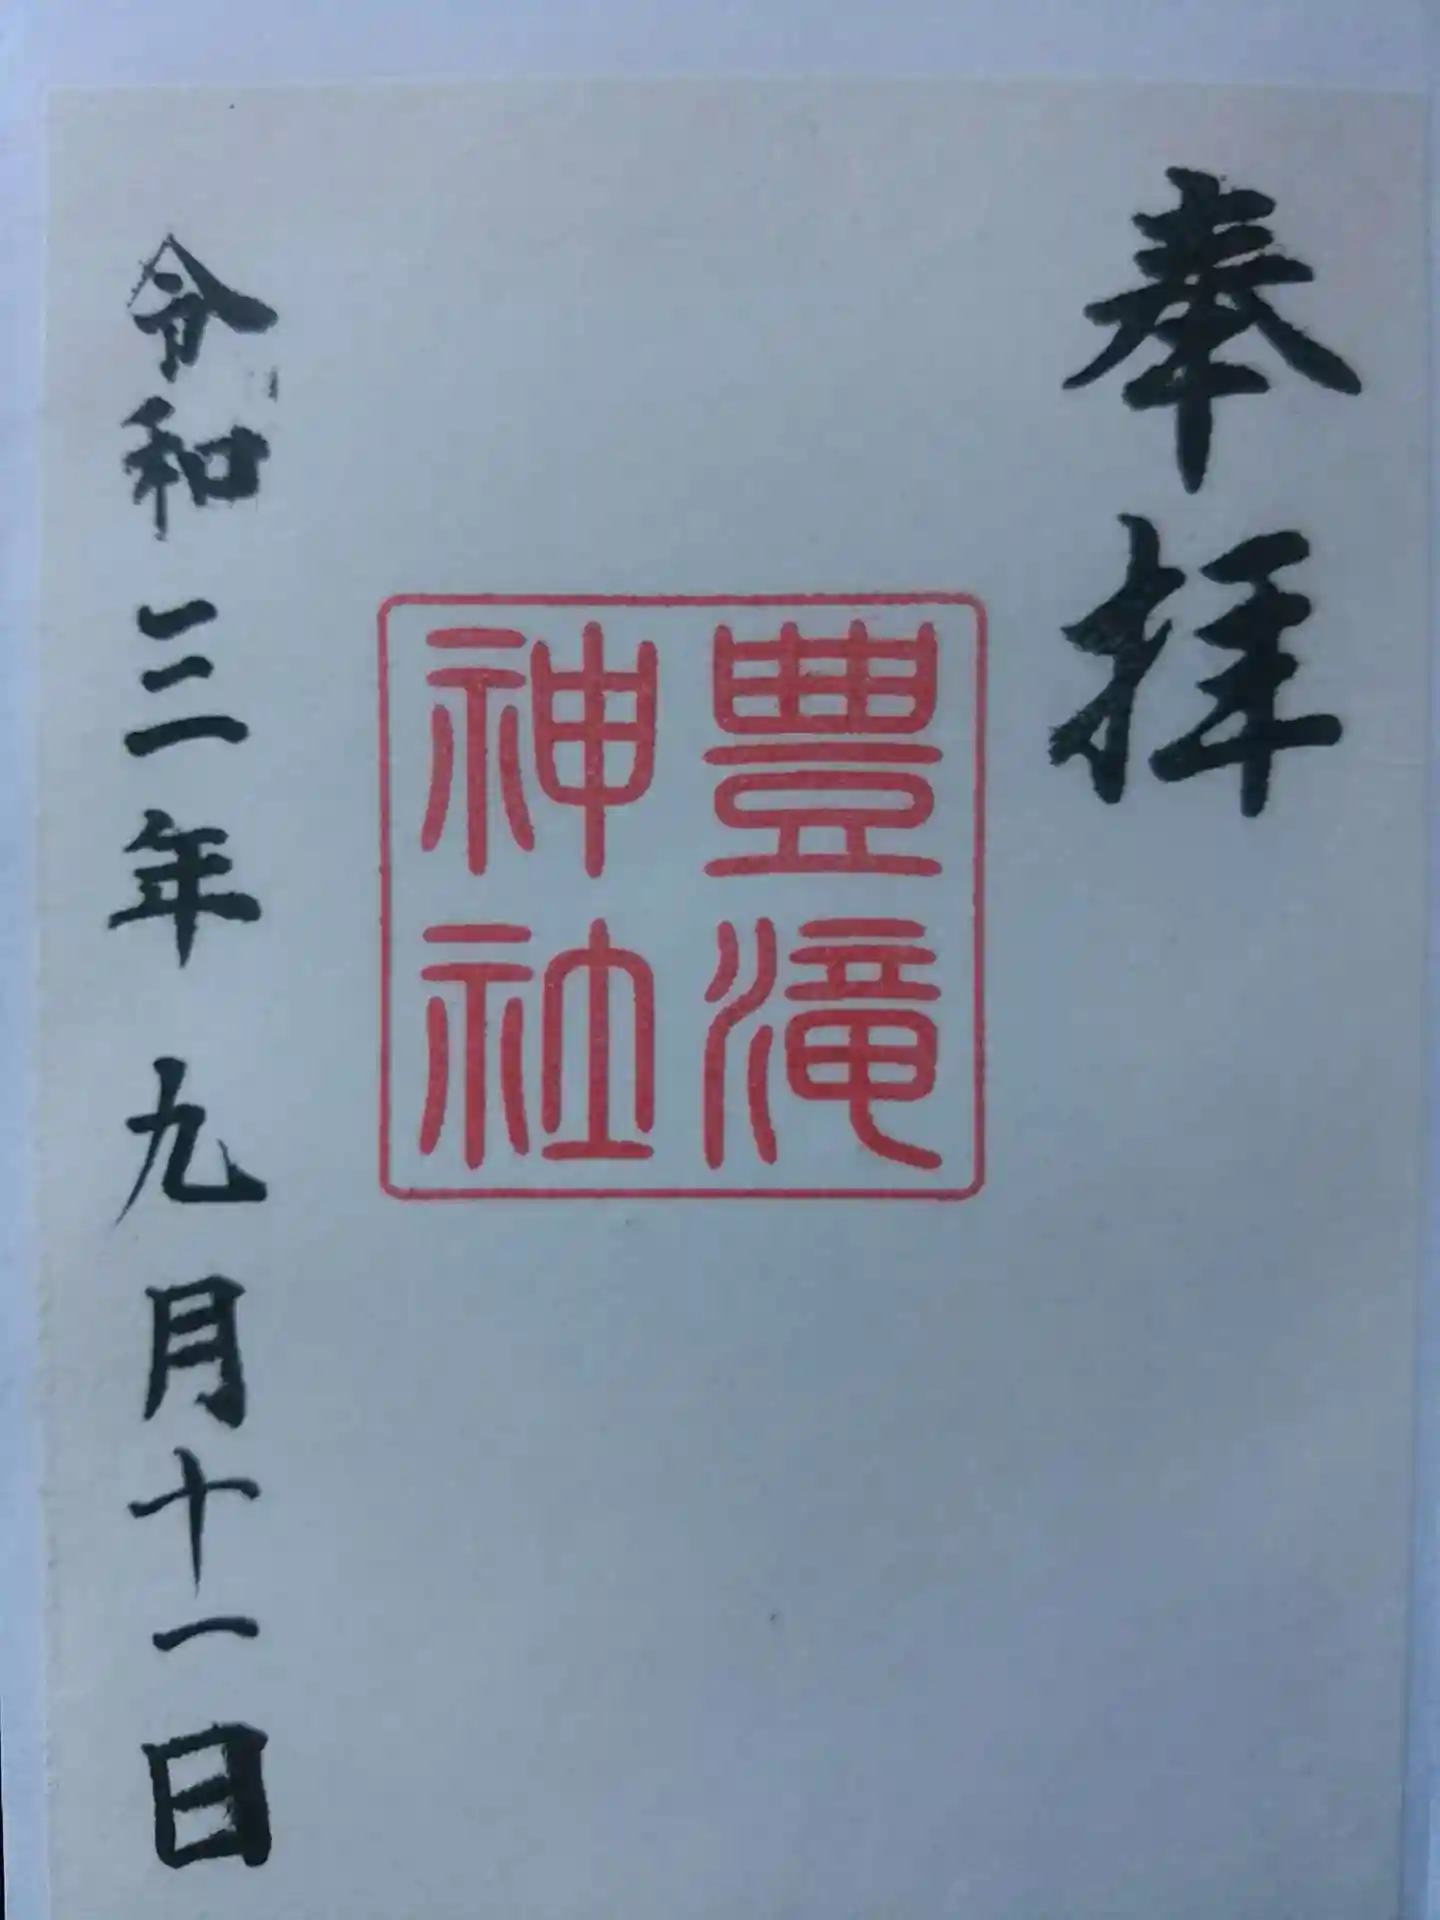 奉拝
豊滝
神社
令和三年九月十一日